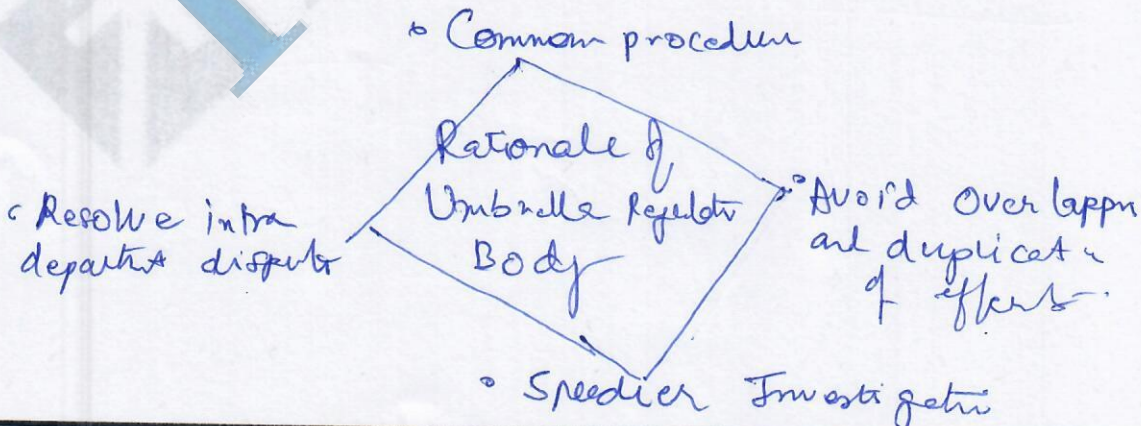 • Common procedure
Rationale of
Umbrella Regulator
Body
• Resolve intra
department disputes
• Avoid Overlapping
and duplication
of efforts.
• Speedier Investigation